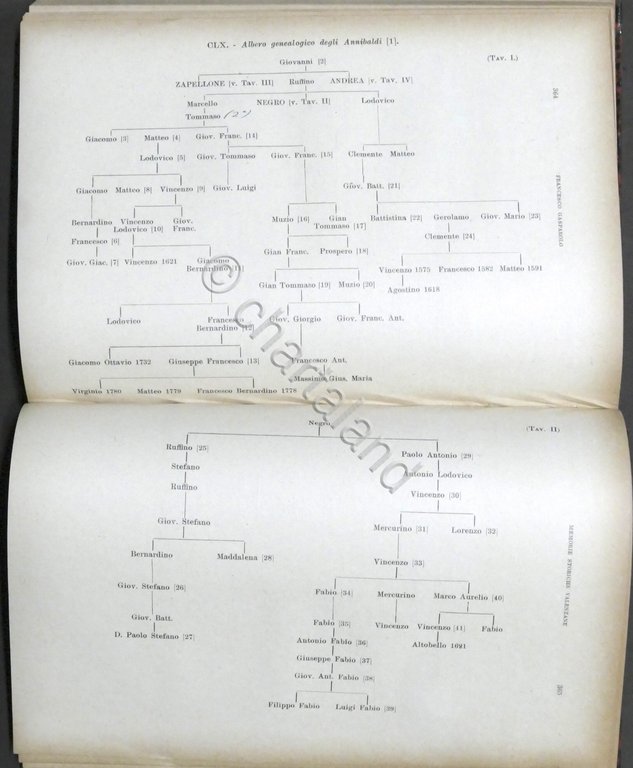 CLX. - Albero genealogico degli Annibaldi [1].
(TAV. I.)
Giovanni [2]
ZAPELLONE [v. Tav. III] Ruffino ANDREA [v. Tav. IV]
Marcello NEGRO [v. Tav. II] Lodovico
Tommaso
Giacomo [3] Matteo [4] Giov. Franc. [14]
Lodovico [5] Giov. Tommaso Giov. Franc. [15] Clemente Matteo
Giacomo Matteo [8] Vincenzo [9] Giov. Luigi Giov. Batt. [21]
Bernardino Vincenzo Giov. Muzio [16] Gian Battistina [22] Gerolamo Giov. Mario [23]
Lodovico [10] Franc. Tommaso [17]
Francesco [6] Clemente [24]
Gian Franc. Prospero [18]
Giov. Giac. [7] Vincenzo 1621 Giacomo
Bernardino [11] Vincenzo 1575 Francesco 1582 Matteo 1591
Gian Tommaso [19] Muzio [20] Agostino 1618
Lodovico Francesco Giov. Giorgio Giov. Franc. Ant.
Bernardino [12]
Giacomo Ottavio 1732 Giuseppe Francesco [13] Francesco Ant.
Massimo Gius. Maria
Virginio 1780 Matteo 1779 Francesco Bernardino 1778
364
FRANCESCO GASPAROLO
Negro
(TAV. II)
Ruffino [25] Paolo Antonio [29]
Stefano Antonio Lodovico
Ruffino Vincenzo [30]
Giov. Stefano Mercurino [31] Lorenzo [32]
Bernardino Maddalena [28] Vincenzo [33]
Giov. Stefano [26] Fabio [34] Mercurino Marco Aurelio [40]
Giov. Batt. Fabio [35] Vincenzo Vincenzo [41] Fabio
D. Paolo Stefano [27] Antonio Fabio [36] Altobello 1621
Giuseppe Fabio [37]
Giov. Ant. Fabio [38]
Filippo Fabio Luigi Fabio [39]
MEMORIE STORICHE VALENZANE
365
© chartaland